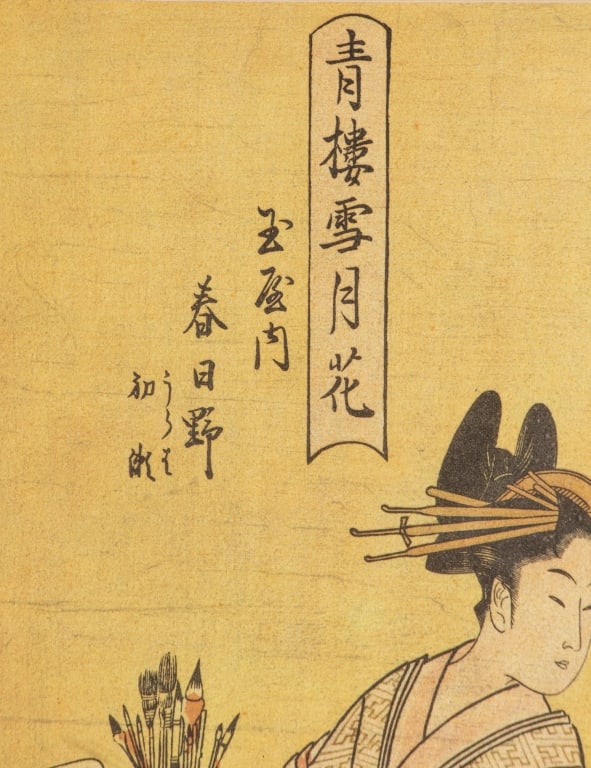 青樓雪月花
玉屋内
春日野
うらは
初瀬